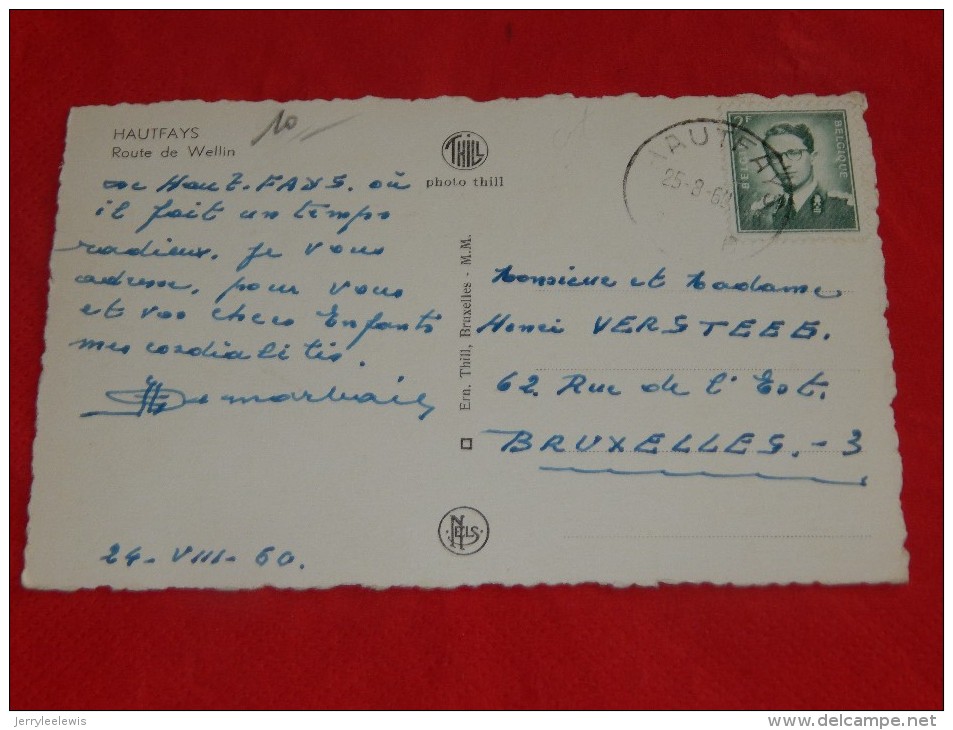 HAUTFAYS
Route de Wellin
10
THILL
photo thill
de Haut-FAYS. où
il fait un temps
radieux, je vous
adresse, pour vous
et vos chers Enfants
mes cordialités.
24-VIII-60.
Ern. Thill, Bruxelles - M.M.
NELS
HAUTFAYS
25-8-60
2F
BELGIE
BELGIQUE
Monsieur et Madame
Henri VERSTEEE.
62. Rue de l'Est.
BRUXELLES.-3
jerryleelewis
www.delcampe.net